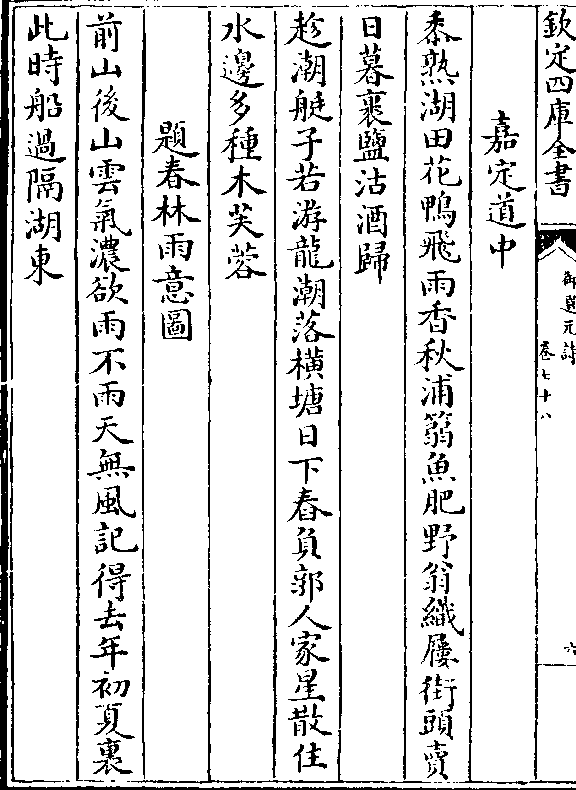 欽定四庫全書
御選元詩
卷七十八
六
嘉定道中
黍熟湖田花鴨飛雨香秋浦篛魚肥野翁織屨街頭賣
日暮裹鹽沽酒歸
趁潮艇子若游龍潮落橫塘日下舂負郭人家星散住
水邊多種木芙蓉
題春林雨意圖
前山後山雲氣濃欲雨不雨天無風記得去年初夏裏
此時船過隔湖東